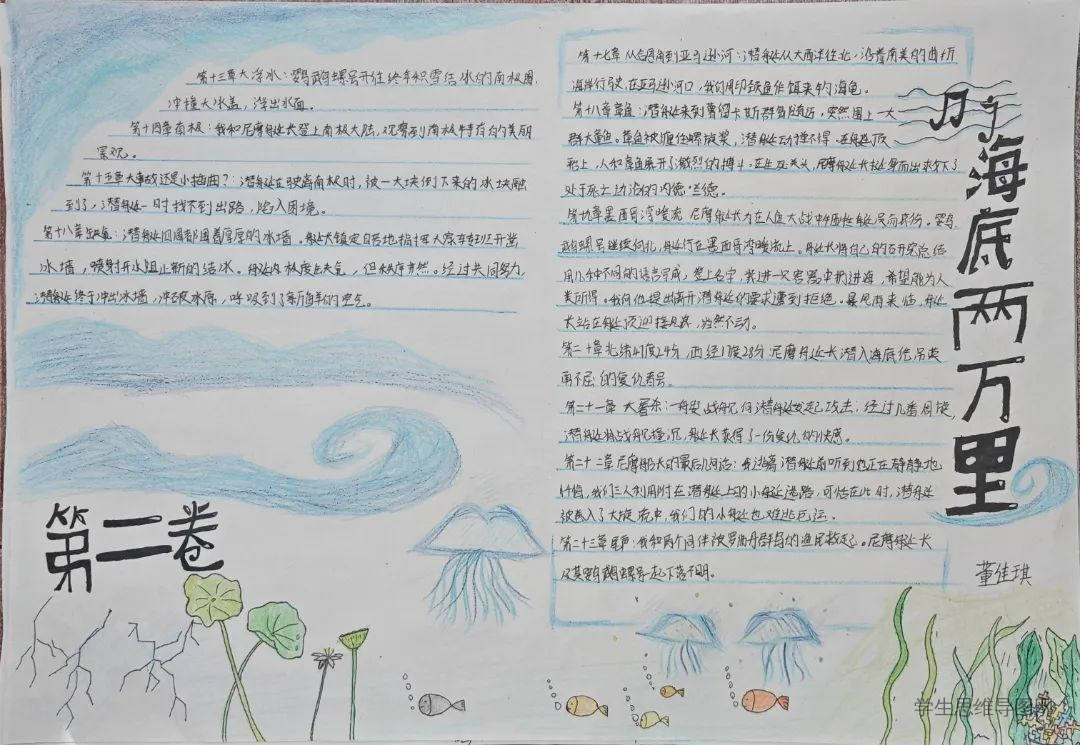 第十三章大浮冰：鹦鹉螺号开往终年积雪结冰的南极圈
冲撞大冰盖，浮出水面。
第十四章南极：我和尼摩船长登上南极大陆，观察到南极特有的美丽
景观。
第十五章大事故还是小插曲？：潜艇在驶离南极时，被一大块倒下来的冰块
到了，潜艇一时找不到出路，陷入困境。
潜艇四周都围着厚厚的冰墙。船长镇定自若地指挥大家
冰墙，喷射开水阻止新的结冰。艇内极度缺氧气，但秩序井然。经过共同努力，
潜艇终于冲出冰墙，冲破水席，呼吸到了新鲜的空气。
第二卷
第十七章 从合恩角到亚马逊河：潜艇从大西洋往北，沿着南美的曲折
海岸行驶，在亚马逊河口，我们用印鱼作饵来钓海龟。
第十八章章鱼：潜艇来到鲁留卡斯群岛附近，突然围上一大
群大章鱼。章鱼被缠住螺旋桨，潜艇动弹不得。在艇顶
形上，人和章鱼展开了激烈的搏斗。在生死关头，尼摩艇长挺身而出来救下了
处于死亡边沿的内德·兰德。
第十九章墨西哥湾暖流 尼摩船长为在人鱼大战中牺牲艇员而哀伤。鹦
鹉螺号继续向北，航行在墨西哥湾暖流上。船长将自己的研究总结
用几种不同的语言写成，签上名字，装进一只容器中扔进海，希望能为人
类所得。我向他提出离开潜艇的要求遭到拒绝。暴风雨来临，船
长站在艇顶迎接风暴，岿然不动。
第二十章北纬47度24分，西经17度28分：尼摩船长潜入海底给吊英
雨不屈的复仇者号。
第二十一章 大屠杀：一艘战舰向潜艇发起攻击；经过几番周旋，
潜艇将战舰撞沉，船长获得了一份复仇的快感。
第二十二章尼摩船长的最后几句话：我逃离潜艇前听到他正在静静地
忏悔，我们三人利用附在潜艇上的小艇逃路，可恰在此时，潜艇
被卷入了大旋流中，我们的小艇也难逃厄运。
第二十三章尾声：我和两个同伴被罗佛丹群岛的渔民救起。尼摩船长
及其鹦鹉螺号一起下落不明。
海底两万里
董佳琪
学生思维导图